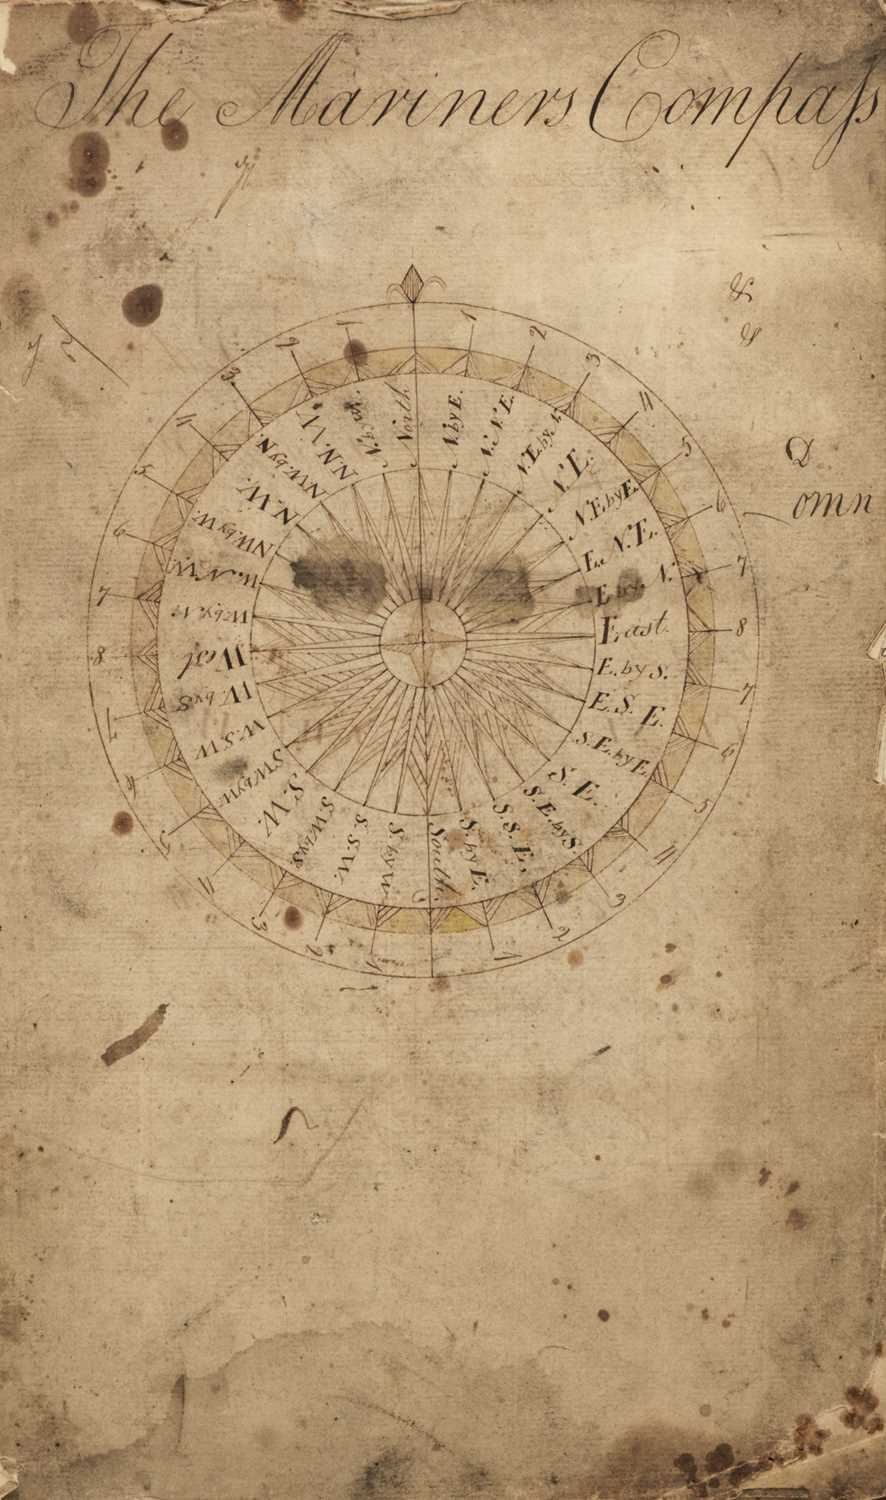 The Mariners Compaſs
y
&
&
Q
omn
North
N. by E.
N. N. E.
N.E. by N.
N. E.
N. E. by E.
E. N. E.
E by. N.
East.
E. by S.
E. S. E.
S. E. by E.
S. E.
S. E. by S.
S. S. E.
S. by E.
South.
S. by W.
S. S. W.
S W by S.
S. W.
S W by W.
W. S. W
W. by S
West
W. by. N
W. N. W.
NW. by W.
N. W.
NW. by. N.
N N. W.
N. by W.
1 2 3 4 5 6 7 8 7 6 5 4 3 2 1
1 2 3 4 5 6 7 8 7 6 5 4 3 2 1